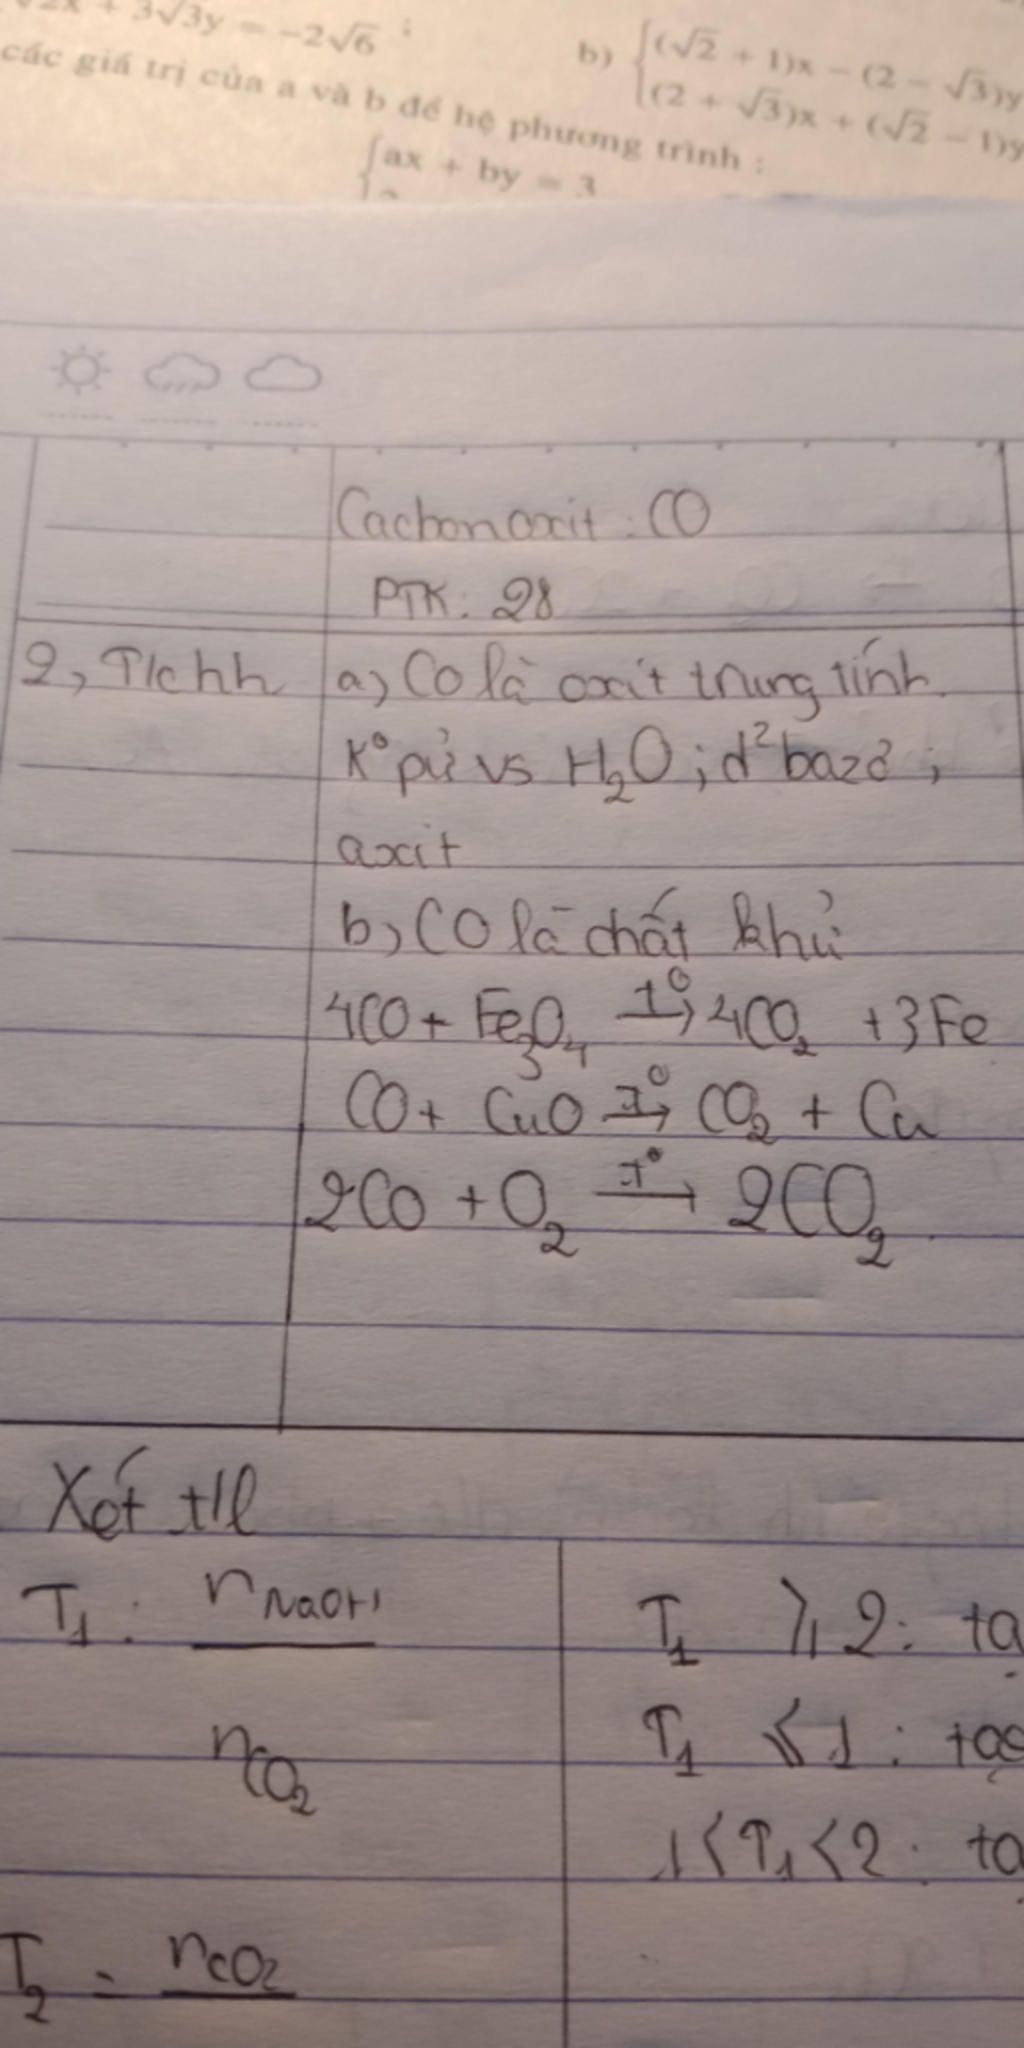 √2x + 3√3y = -2√6 ;
b) {(√2 + 1)x - (2 - √3)y
(2 + √3)x + (√2 - 1)y
các giá trị của a và b để hệ phương trình :
{ax + by = 3
Cacbon oxit : CO
PTK : 28
2, T/c hh
a, CO là oxit trung tính
K° pứ vs H₂O ; d² bazơ ;
axit
b, CO là chất khử
4CO + Fe₃O₄ t°→ 4CO₂ + 3Fe
CO + CuO t°→ CO₂ + Cu
2CO + O₂ t°→ 2CO₂
Xét t/l
T₁ : nNaOH / nCO₂
T₁ ⩾ 2 : tạ
T₁ ⩽ 1 : tạo
1 < T₁ < 2 : tạ
T₂ = nCO₂